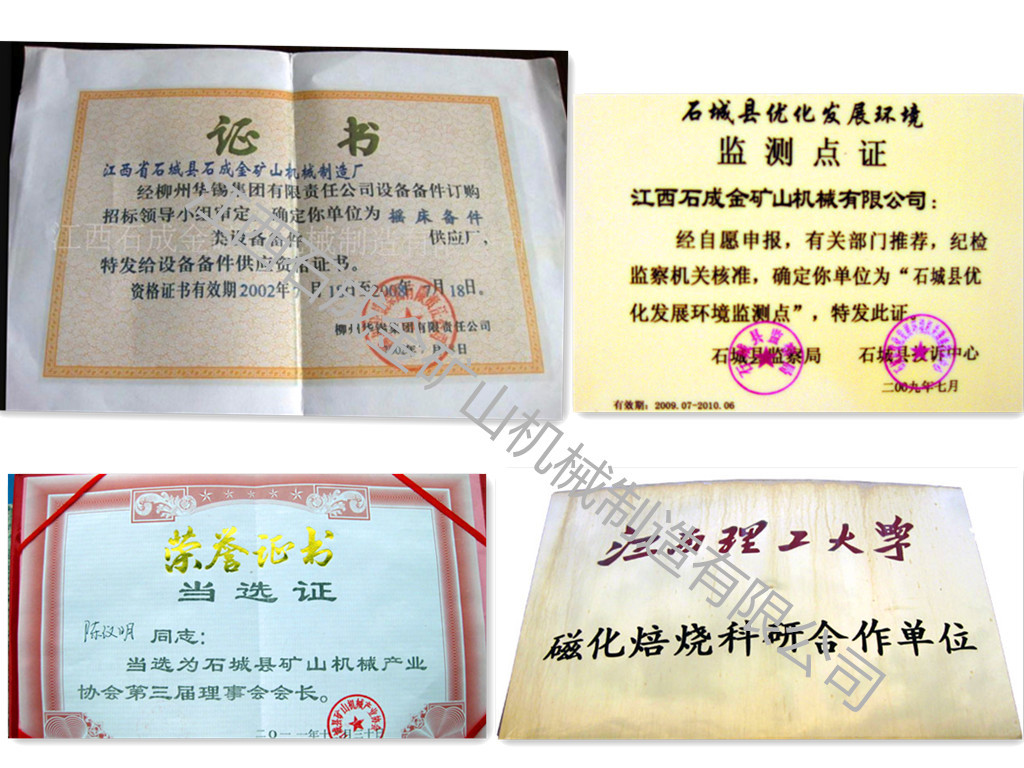 证书
江西省石城县石成金矿山机械制造厂
经柳州华锡集团有限责任公司设备备件订购
招标领导小组审定，确定你单位为 摇床备件
类设备备件 供应厂，
特发给设备备件供应资格证书。
资格证书有效期2002年7月18日至2008年7月18日。
柳州华锡集团有限责任公司
石城县优化发展环境
监测点证
江西石成金矿山机械有限公司：
经自愿申报，有关部门推荐，纪检
监察机关核准，确定你单位为“石城县优
化发展环境监测点”，特发此证。
石城县监察局 石城县投诉中心
二00九年七月
有效期：2009.07-2010.06
荣誉证书
当选证
陈仪明 同志：
当选为石城县矿山机械产业
协会第三届理事会会长。
江西理工大学
磁化焙烧科研合作单位
江西石成金矿山机械制造有限公司